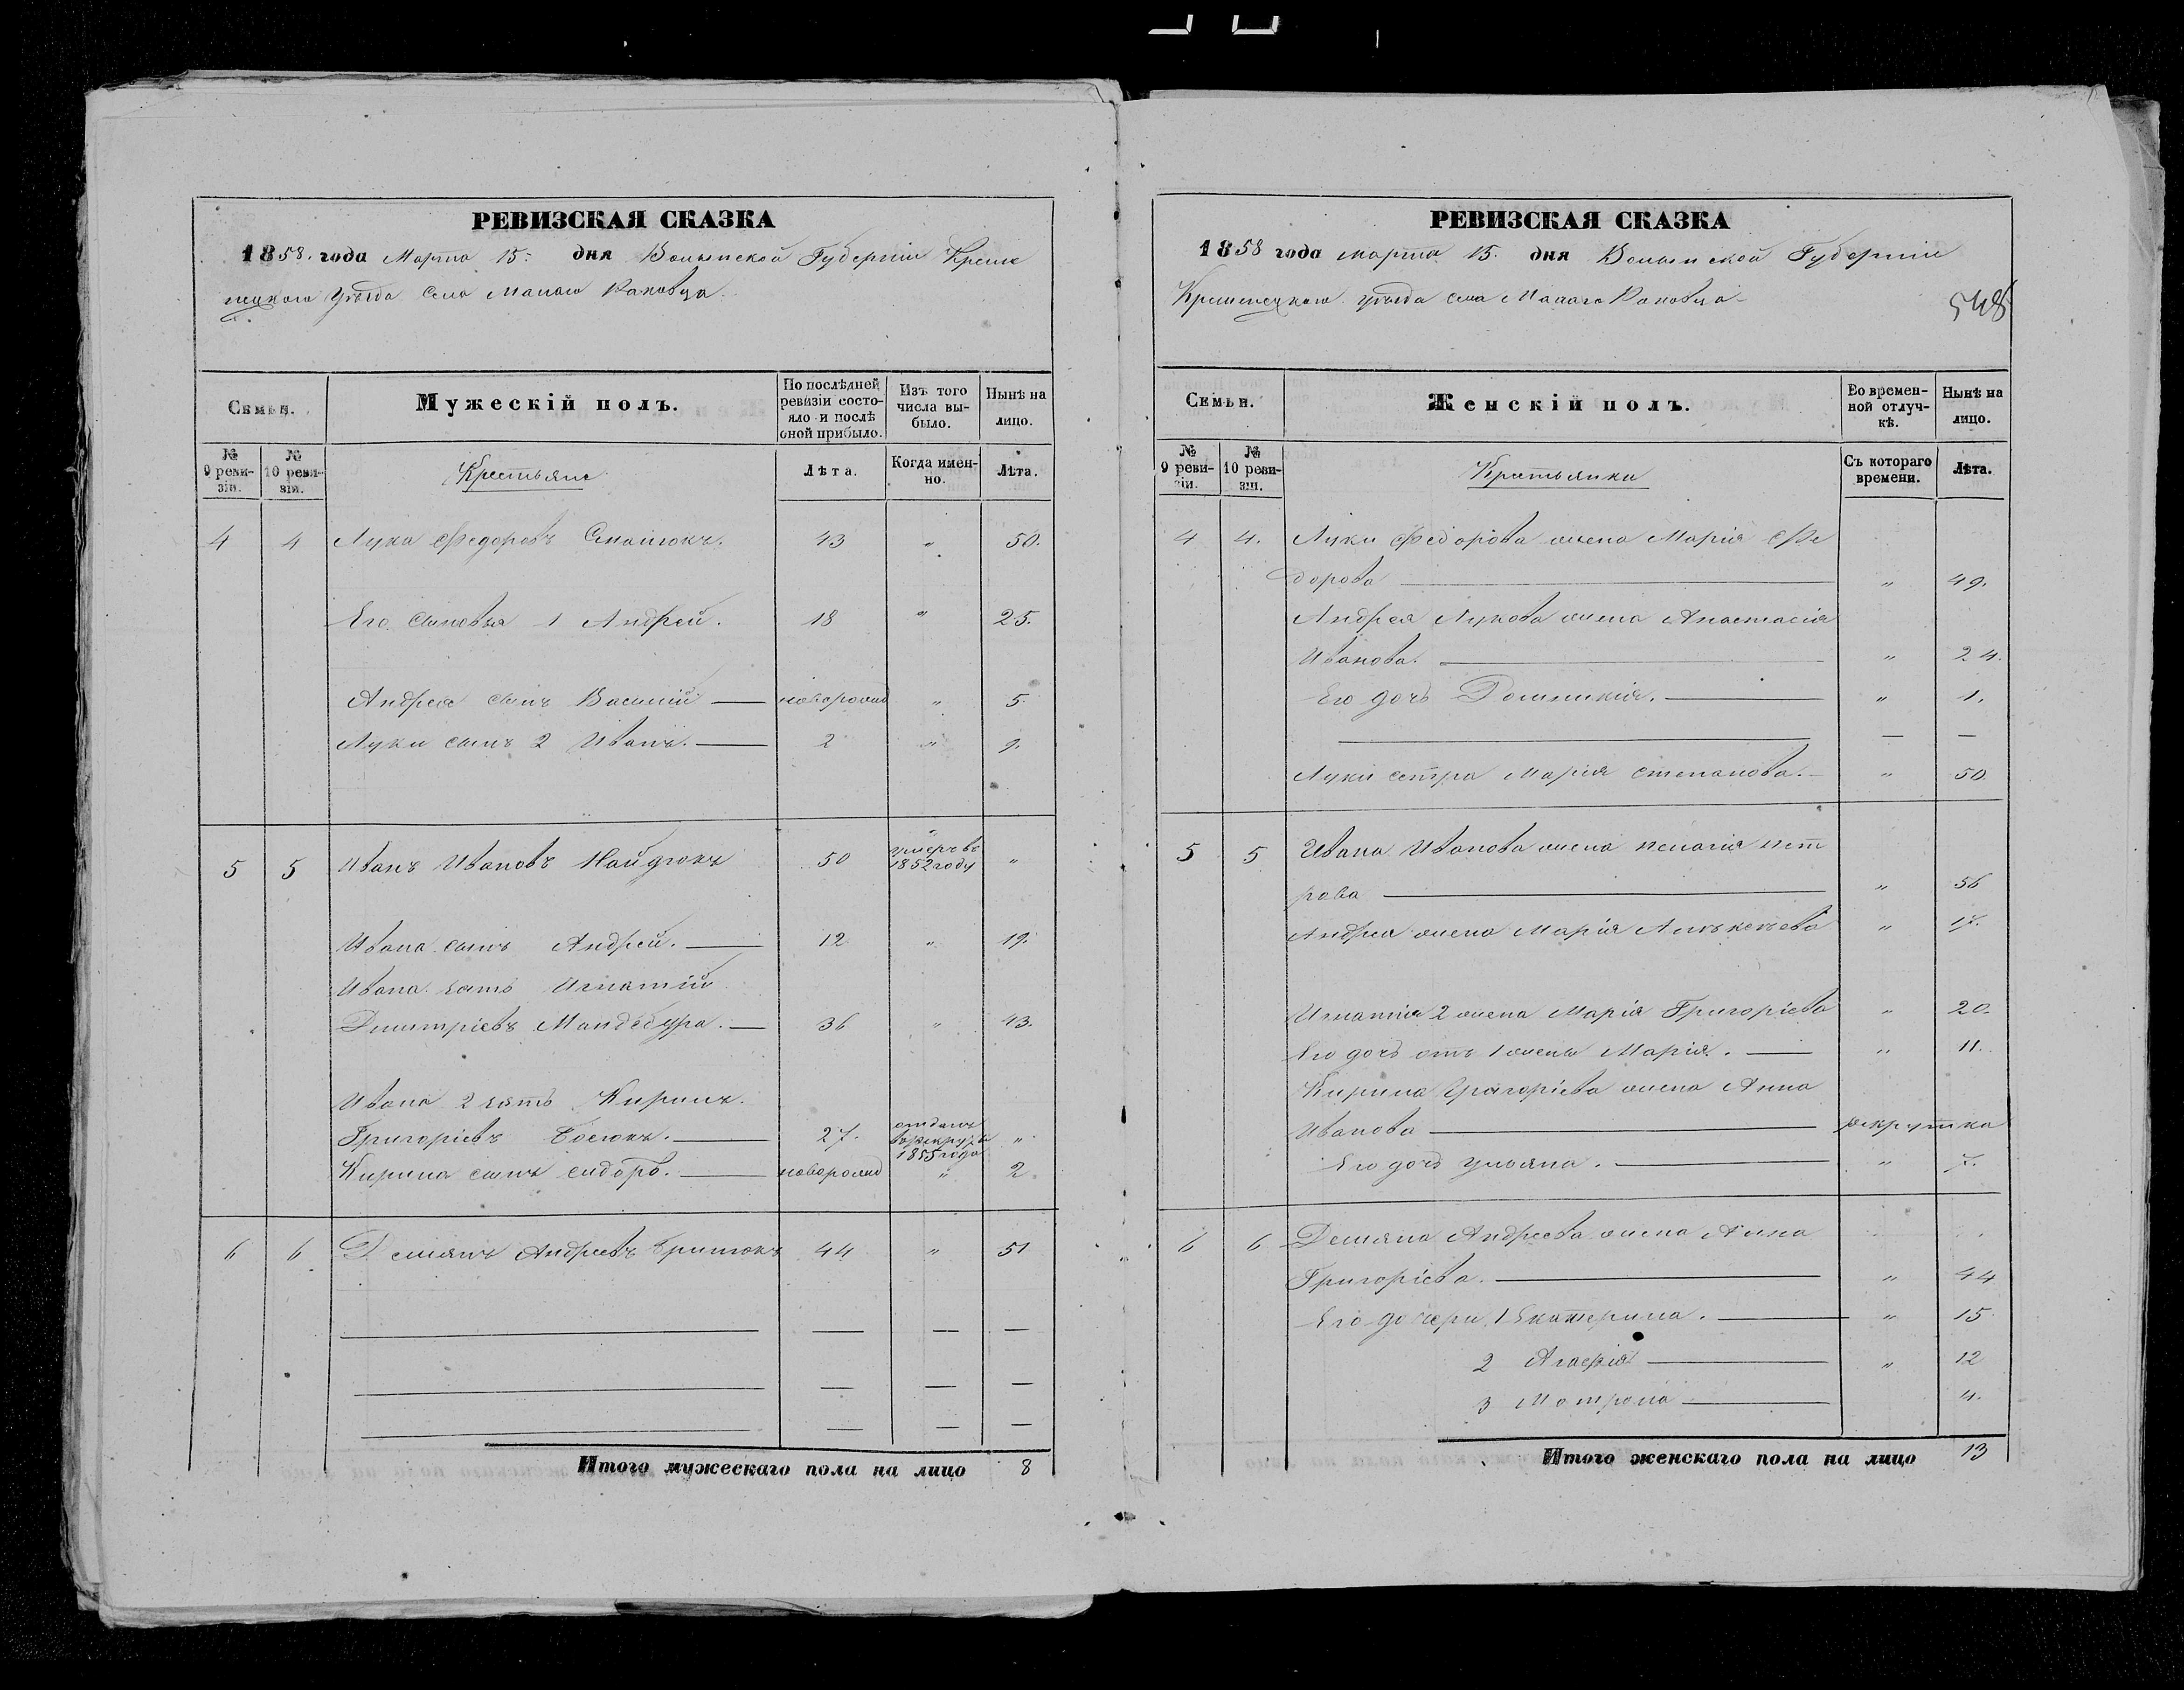 РЕВИЗСКАЯ СКАЗКА
1858. года Марта 15. дня Волынской Губерніи Креме
нецкого Уѣзда Села Малаго Раковца
Семьи. Мужескій полъ. По послѣдней ревизіи состояло и послѣ оной прибыло. Изъ того числа выбыло. Нынѣ на лицо.
№ 9 ревизіи. № 10 ревизіи. Крестьяне Лѣта. Когда именно. Лѣта.
4 4 Лука Федоровъ 43 " 50.
Его Сыновья 1 Андрей. 18 " 25.
Андрея сынъ Василій новорожд " 5.
Луки сынъ 2 Иванъ. 2 " 9.
5 5 Иванъ Ивановъ Найдюкъ 50 умеръ въ 1852 году "
Ивана сынъ Андрей. 12 " 19.
Ивана зять Игнатій
Дмитріевъ Мандебура. 36 " 43.
Ивана 2 зять Кирилъ
Григоріевъ 27. отданъ 1855 года "
Кирила сынъ Сидоръ. новорожд " 2.
6 6 Демянъ Андреевъ 44 " 51
Итого мужескаго пола на лицо 8
РЕВИЗСКАЯ СКАЗКА
1858 года марта 15. дня Волынской Губерніи
Кременецкаго уѣзда села Малаго Раковца
548
Семьи. Женскій полъ. Во временной отлучкѣ. Нынѣ на лицо.
№ 9 ревизіи. № 10 ревизіи. Крестьянки Съ котораго времени. Лѣта.
4 4. Луки Федорова жена Марія Фе
дорова " 49.
Андрея Лукова жена Анастасія
Иванова. " 24.
Его дочь Домникія. " 1.
Луки сестра Марія Степанова. " 50.
5 5 Ивана Иванова жена Пелагія Пет
рова " 56
Андрея жена Марія " 17.
Игнатія 2 жена Марія Григоріева " 20.
Его дочь отъ 1 жены Марія. " 11.
Кирила Григоріева жена Анна
Иванова рекрутка
Его дочь Ульяна. " 7.
6 6 Демяна Андреева жена Анна
Григоріева. " 44
Его дочери 1 Екатерина. " 15
2 " 12
3 Мотрона 4.
Итого женскаго пола на лицо 13